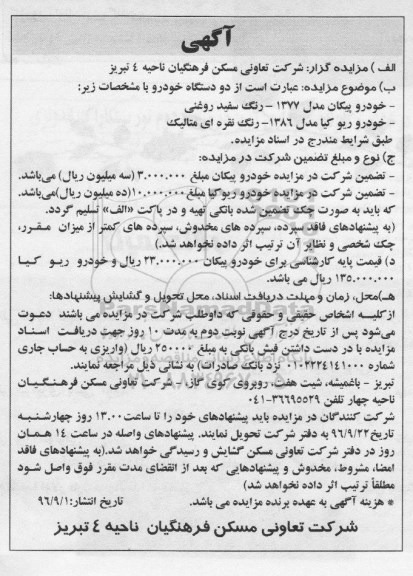 آگهی
الف) مزایده گزار: شرکت تعاونی مسکن فرهنگیان ناحیه ٤ تبریز
ب) موضوع مزایده: عبارت است از دو دستگاه خودرو با مشخصات زیر:
- خودرو پیکان مدل ۱۳۷۷ - رنگ سفید روغنی
- خودرو ریو کیا مدل ۱۳۸۶- رنگ نقره ای متالیک
طبق شرایط مندرج در اسناد مزایده.
ج) نوع و مبلغ تضمین شرکت در مزایده:
- تضمین شرکت در مزایده خودرو پیکان مبلغ ۳.۰۰۰.۰۰۰ (سه میلیون ریال) می‌باشد.
- تضمین شرکت در مزایده خودرو ریوکیا مبلغ ۱۰.۰۰۰.۰۰۰ (ده میلیون ریال) می‌باشد.
که باید به صورت چک تضمین شده بانکی تهیه و در پاکت «الف» تسلیم گردد.
(به پیشنهادهای فاقد سپرده، سپرده های مخدوش، سپرده های کمتر از میزان مقرر، چک شخصی و نظایر آن ترتیب اثر داده نخواهد شد.)
د) قیمت پایه کارشناسی برای خودرو پیکان ۲۳.۰۰۰.۰۰۰ ریال و خودرو ریو کیا ۱۳۵.۰۰۰.۰۰۰ ریال می باشد.
هـ) محل، زمان و مهلت دریافت اسناد، محل تحویل و گشایش پیشنهادها:
از کلیه اشخاص حقیقی و حقوقی که داوطلب شرکت در مزایده می باشند دعوت
می‌شود پس از تاریخ درج آگهی نوبت دوم به مدت ۱۰ روز جهت دریافت اسناد
مزایده با در دست داشتن فیش بانکی به مبلغ ۲۵۰۰۰۰ ریال (واریزی به حساب جاری
شماره ۰۱۰۲۲۲۴۱۴۱۰۰۰ نزد بانک صادرات) به نشانی ذیل مراجعه نمایند.
تبریز - باغمیشه، شیت هفت، روبروی کوی گاز، - شرکت تعاونی مسکن فرهنگیان
ناحیه چهار تلفن ۳۶۶۹۵۵۲۹-۰۴۱
شرکت کنندگان در مزایده باید پیشنهادهای خود را تا ساعت ۱۳.۰۰ روز چهارشنبه
تاریخ ۹۶/۹/۲۲ به دفتر شرکت تحویل نمایند. پیشنهادهای واصله در ساعت ۱۴ همان
روز در دفتر شرکت تعاونی مسکن گشایش و رسیدگی خواهد شد.(به پیشنهادهای فاقد
امضا، مشروط، مخدوش و پیشنهادهایی که بعد از انقضای مدت مقرر فوق واصل شود
مطلقاً ترتیب اثر داده نخواهد شد)
* هزینه آگهی به عهده برنده مزایده می باشد. تاریخ انتشار: ۹۶/۹/۱
شرکت تعاونی مسکن فرهنگیان ناحیه ٤ تبریز